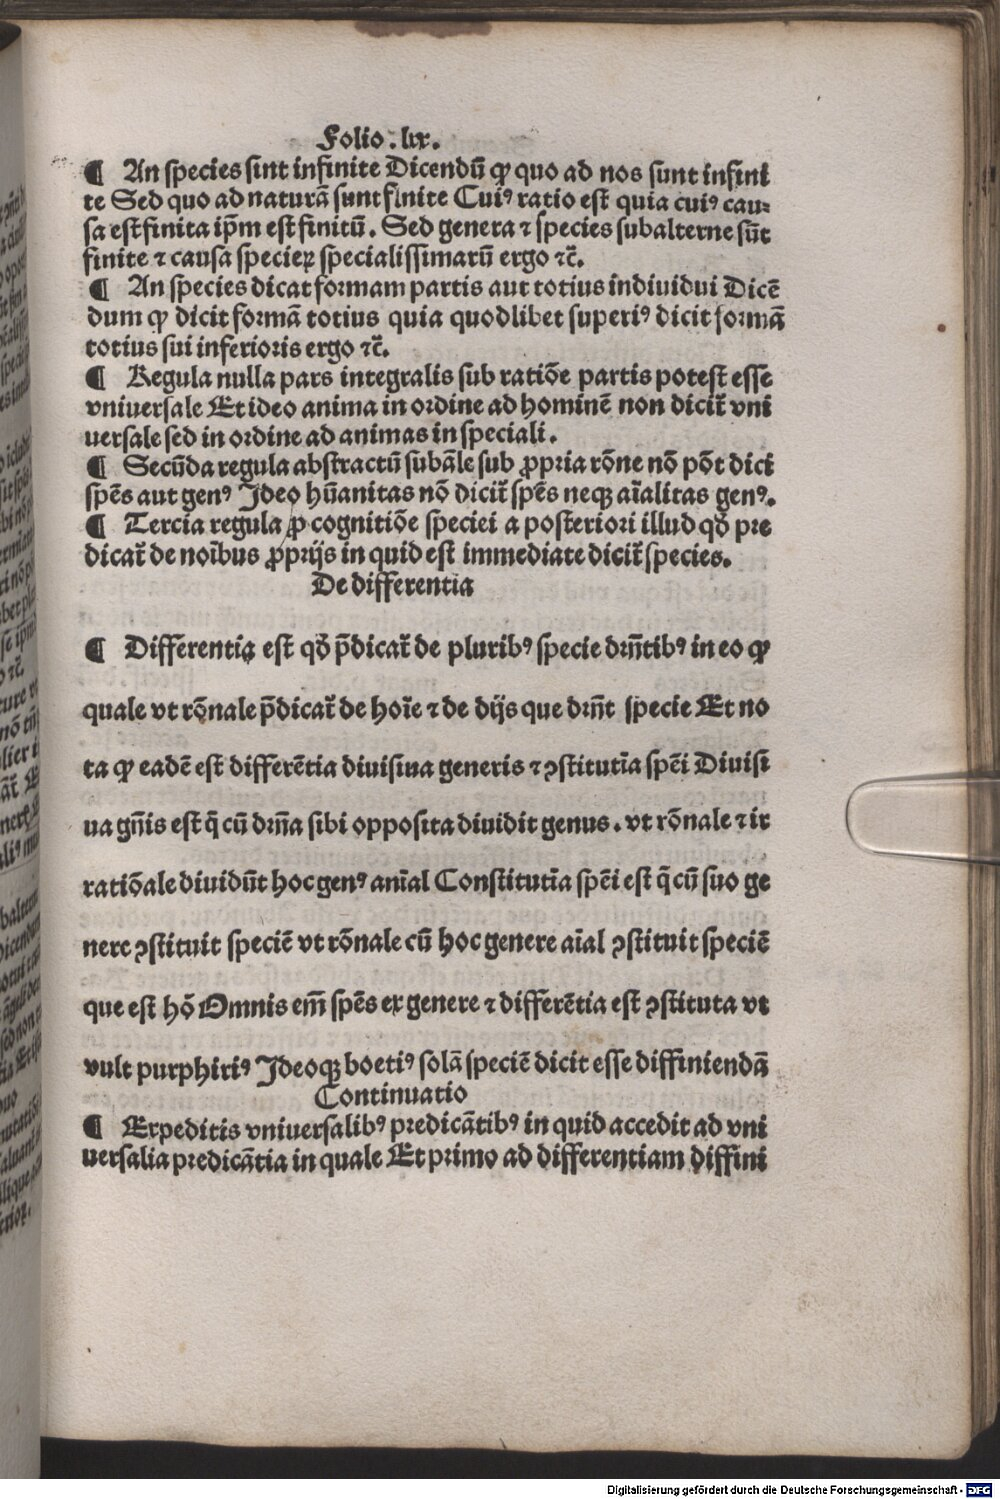 Folio.lix.
¶ An species sint infinite Dicendū ꝙ quo ad nos sunt infini
te Sed quo ad naturā sunt finite Cuiꝰ ratio est quia cuiꝰ cau⸗
sa est finita ip̄m est finitū. Sed genera ⁊ species subalterne sūt
finite ⁊ causa specieꝝ specialissimarū ergo ⁊c̄.
¶ An species dicat formam partis aut totius indiuidui Dicē
dum ꝙ dicit formā totius quia quodlibet superiꝰ dicit formā
totius sui inferioris ergo ⁊c̄.
¶ Regula nulla pars integralis sub ratiōe partis potest esse
vniuersale Et ideo anima in ordine ad hominē non dicit̄ vni
uersale sed in ordine ad animas in speciali.
¶ Secūda regula abstractū subāle sub ꝓpria rōne nō pōt dici
spēs aut genꝰ Ideo hūanitas nō dicit̄ spēs neqꝫ aīalitas genꝰ.
¶ Tercia regula ꝓ cognitiōe speciei a posteriori illud qd̄ pre
dicat̄ de noībus ꝓprijs in quid est immediate dicit̄ species.
De differentia
¶ Differentia est qd̄ p̄dicat̄ de pluribꝰ specie dr̄ntibꝰ in eo ꝙ
quale vt rōnale p̄dicat̄ de hoīe ⁊ de dijs que dr̄nt specie Et no
ta ꝙ eadē est differētia diuisiua generis ⁊ ꝯstitutīa spēi Diuisi
ua gn̄is est q̄ cū dr̄na sibi opposita diuidit genus. vt rōnale ⁊ ir
ratiōale diuidūt hoc genꝰ anīal Constitutīa spēi est q̄ cū suo ge
nere ꝯstituit speciē vt rōnale cū hoc genere aīal ꝯstituit speciē
que est hō Omnis em̄ spēs ex genere ⁊ differētia est ꝯstituta vt
vult purphiriꝰ Ideoqꝫ boetiꝰ solā speciē dicit esse diffiniendā
Continuatio
¶ Expeditis vniuersalibꝰ predicātibꝰ in quid accedit ad vni
uersalia predicātia in quale Et primo ad differentiam diffini
Digitalisierung gefördert durch die Deutsche Forschungsgemeinschaft - DFG